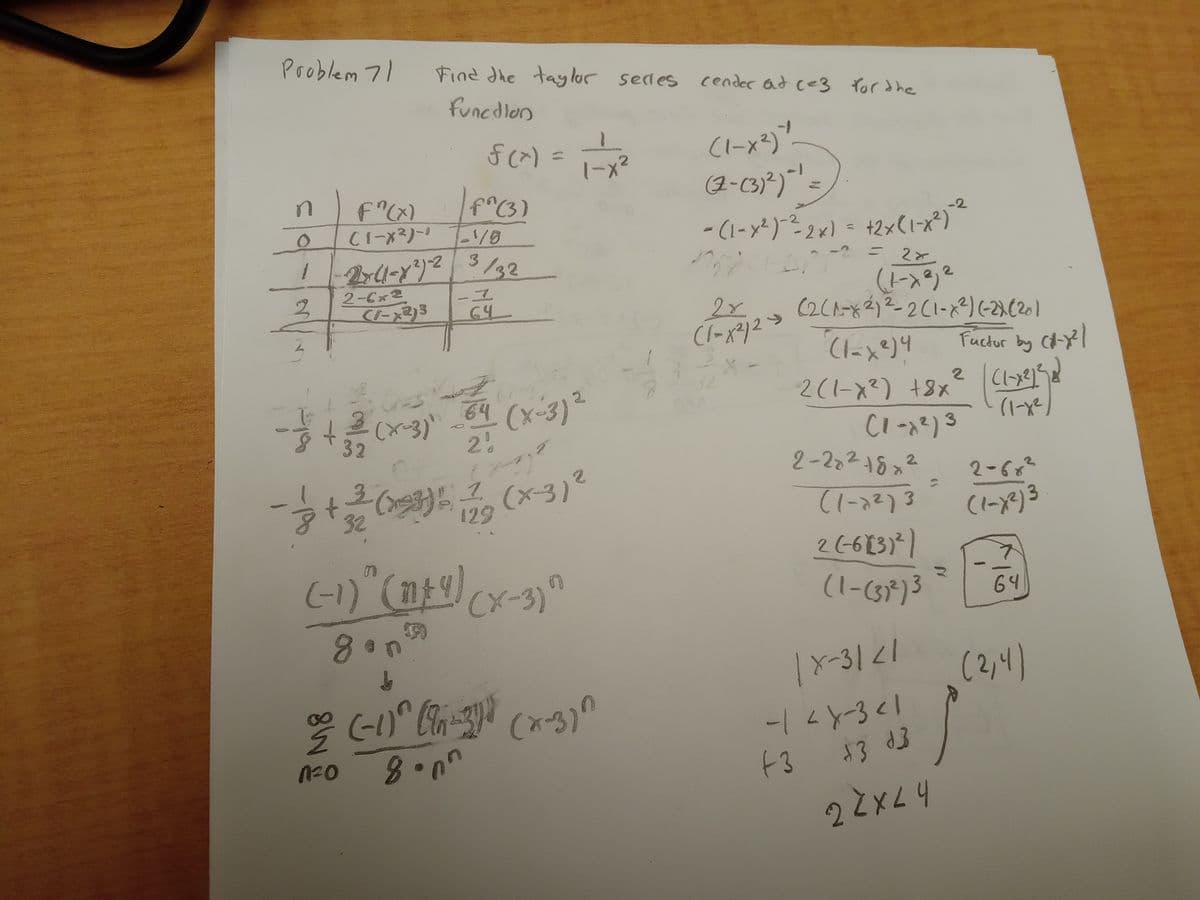 Problem 71 Find the taylor series center at c=3 for the
function
f(x) = 1/(1-x²)
n | fⁿ(x) | fⁿ(3)
0 | (1-x²)⁻¹ | -1/8
1 | 2x(1-x²)⁻² | 3/32
2 | 2-6x²/(1-x²)³ | -7/64
-1/8 + 3/32 (x-3)¹ - 7/64/2! (x-3)²
-1/8 + 3/32 (x-3)¹ - 7/128 (x-3)²
(-1)ⁿ (n+4)/8·n (x-3)ⁿ
↓
∞ Σ n=0 (-1)ⁿ /8·nⁿ (x-3)ⁿ
(1-x²)⁻¹
(1-(3)²)⁻¹ =
-(1-x²)⁻²-2x) = +2x(1-x²)⁻²
= 2x/(1-x²)²
2x/(1-x²)² → (2(1-x²)²-2(1-x²)(-2x)(2x)/(1-x²)⁴ Factor by (1-x²)
2(1-x²) +8x²/(1-x²)³ ((1-x²)²/(1-x²)
2-2x²+8x²/(1-x²)³ = 2-6x²/(1-x²)³
2(-6(3)²)/(1-(3)²)³ = -7/64
|x-3|<1 (2,4)
-1 < x-3 <1
+3 +3 +3
2<x<4